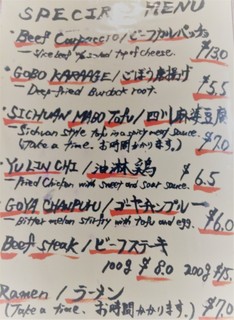 SPECIAL MENU
・Beef Carpaccio/ビーフカルパッチョ
of cheese. $13.0
・GOBO KARAAGE/ごぼう唐揚げ
- Deep-fried Burdock root. $5.5
・SICHUAN MABO Tofu/四川麻婆豆腐
- Sichuan style tofu in a spicy meat sauce.
(Take a time. お時間かかります。) $7.0
・YULIN CHI/油淋鶏
- Fried Chicken with sweet and sour sauce. $6.5
・GOYA CHANPURU/ゴーヤチャンプルー
- Bitter melon stirfry with tofu and egg. $6.0
Beef steak/ビーフステキ
100g $8.0 200g $15.
Ramen/ラーメン
(Take a time. お時間かかります。) $7.0